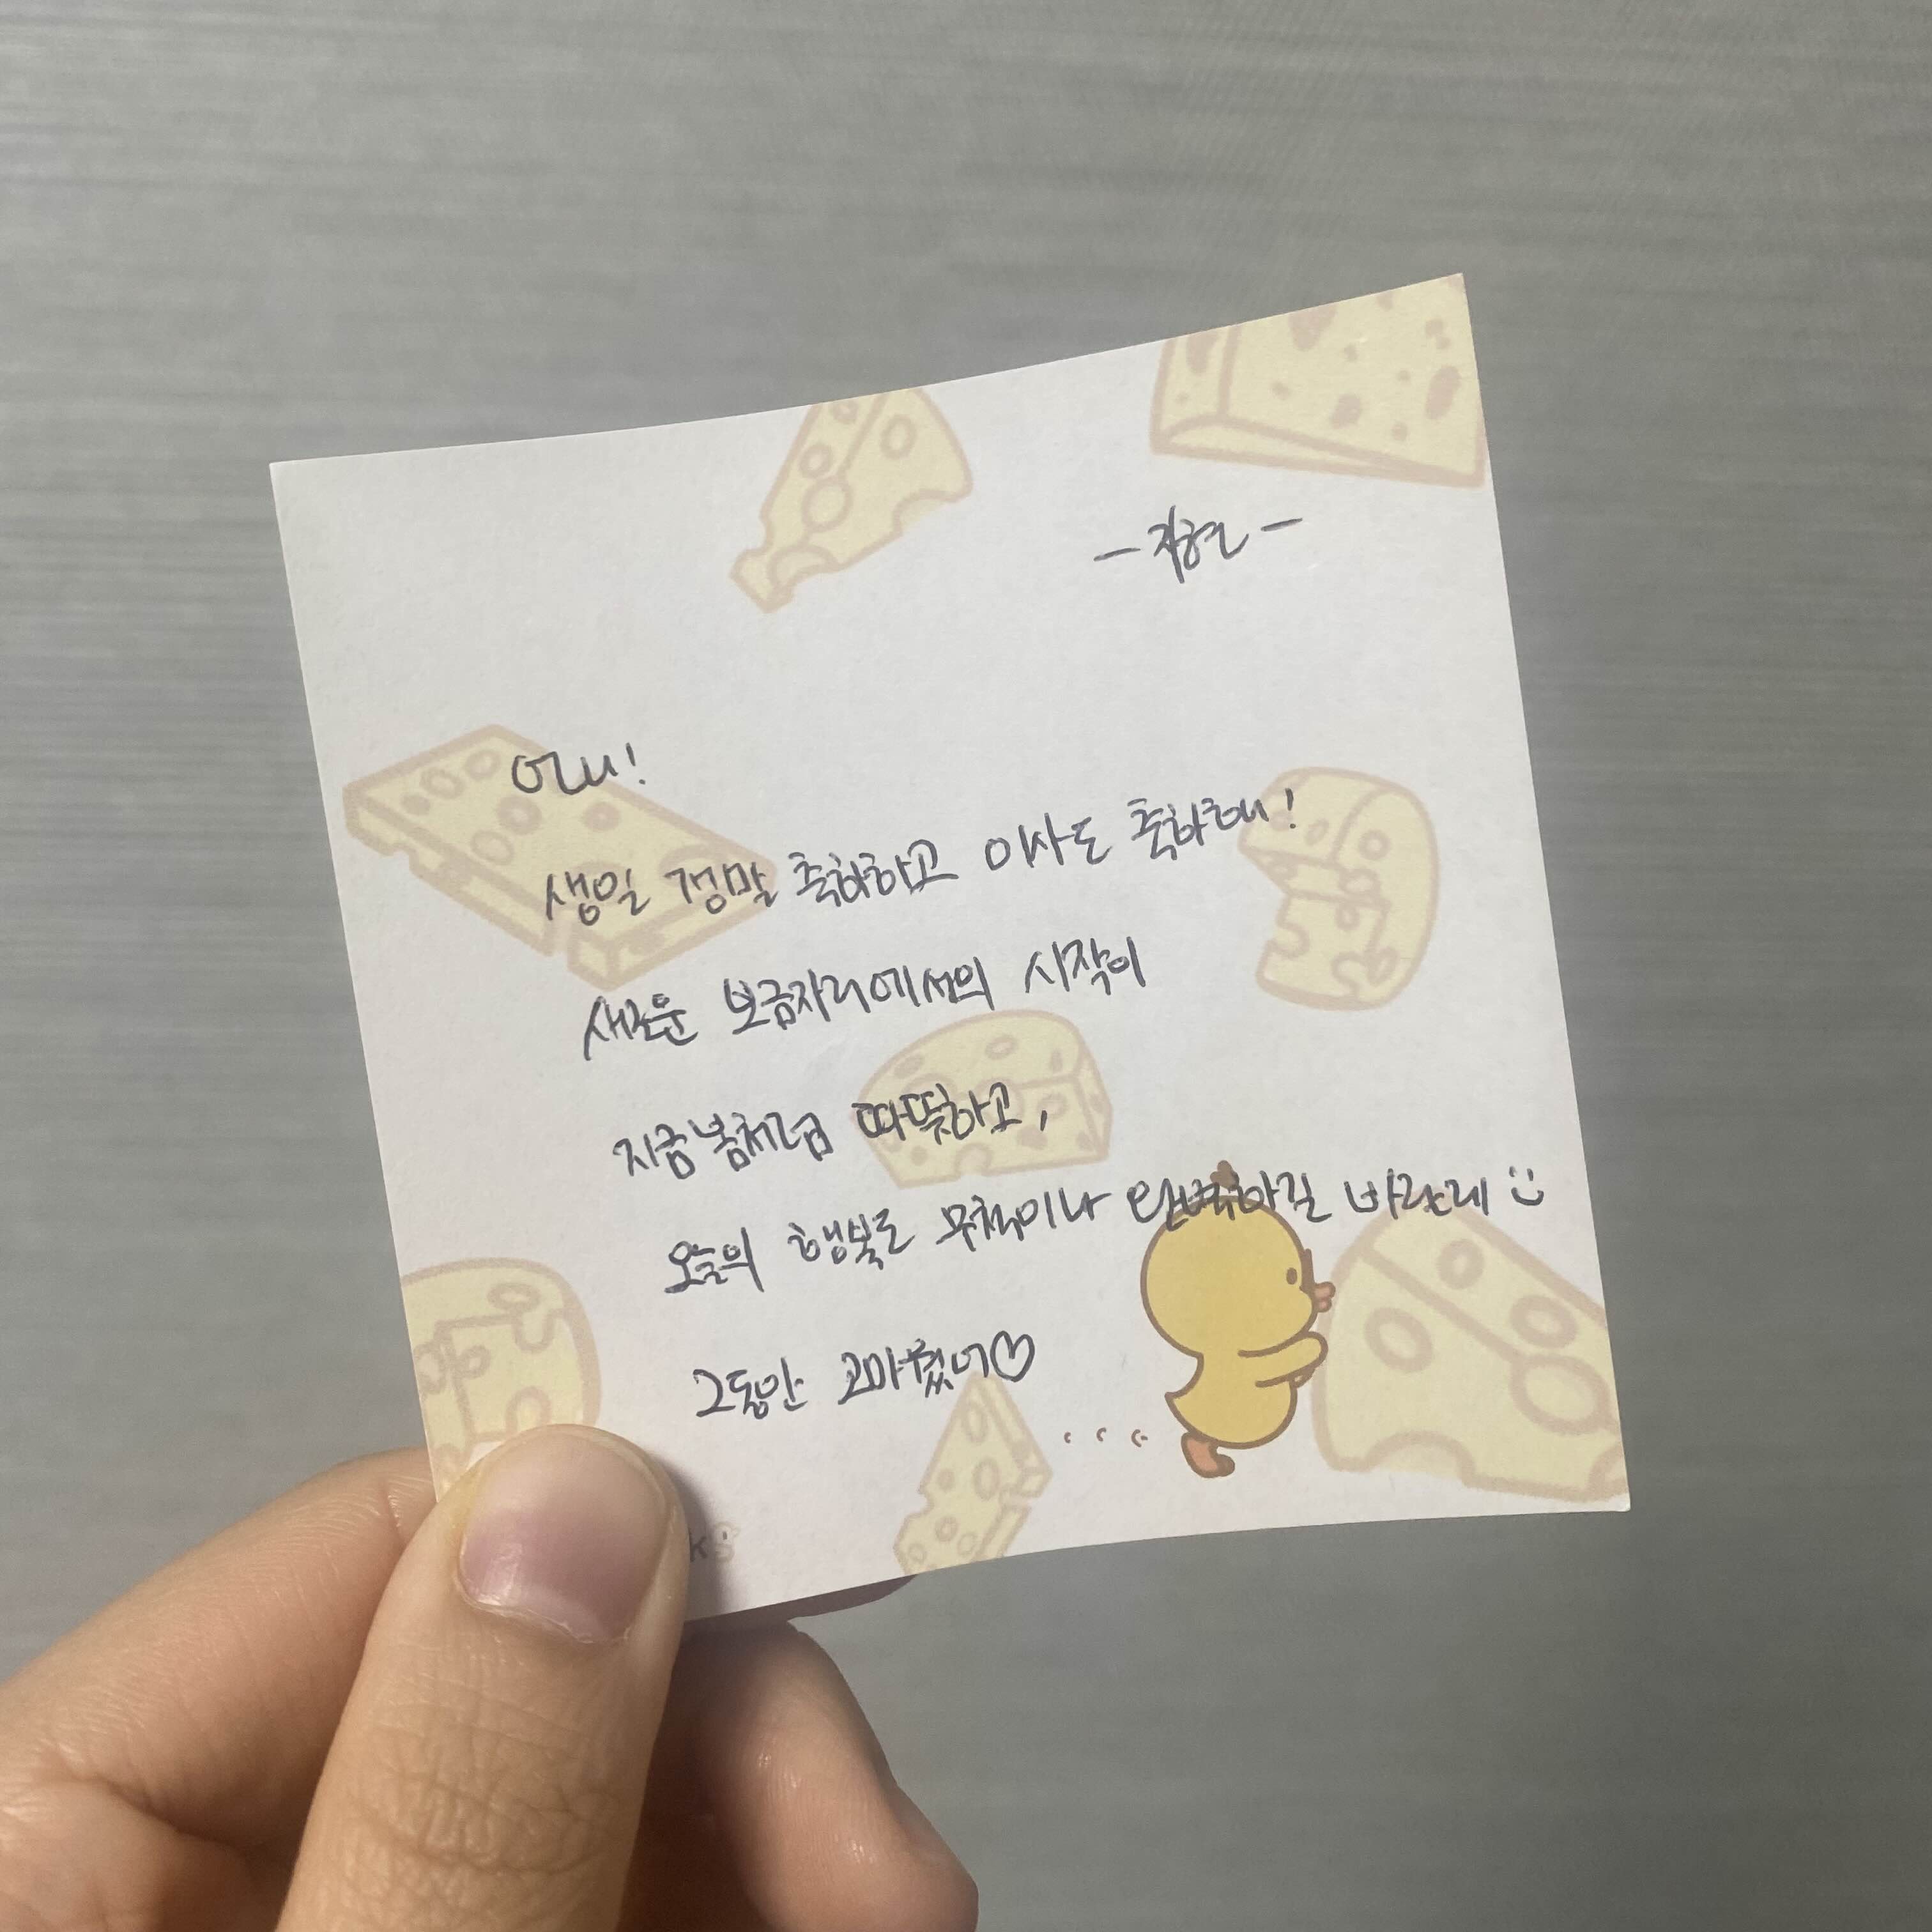 - 지현 -
애니!
생일 정말 축하하고 이사도 축하해!
새로운 보금자리에서의 시작이
지금 봄처럼 따뜻하고,
오늘의 행복도 무척이나 완벽하길 바랄게 :)
그동안 고마웠어♡